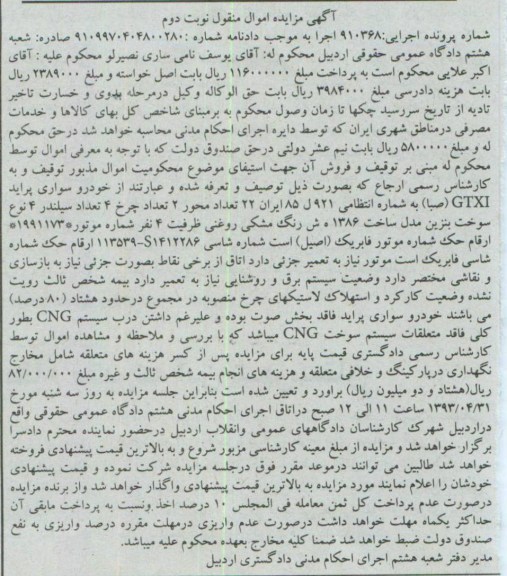 آگهی مزایده اموال منقول نوبت دوم
شماره پرونده اجرایی:۹۱۰۳۶۸ اجرا به موجب دادنامه شماره :۹۱۰۹۹۷۰۴۰۴۸۰۰۲۸۰ صادره: شعبه
هشتم دادگاه عمومی حقوقی اردبیل محکوم له: آقای یوسف نامی ساری نصیرلو محکوم علیه : آقای
اکبر علایی محکوم است به پرداخت مبلغ ۱۱۶۰۰۰۰۰۰ ریال بابت اصل خواسته و مبلغ ۲۳۸۹۰۰۰ ریال
بابت هزینه دادرسی مبلغ ۳۹۸۴۰۰۰ ریال بابت حق الوکاله وکیل درمرحله بدوی و خسارت تاخیر
تادیه از تاریخ سررسید چکها تا زمان وصول محکوم به برمبنای شاخص کل بهای کالاها و خدمات
مصرفی درمناطق شهری ایران که توسط دایره اجرای احکام مدنی محاسبه خواهد شد درحق محکوم
له و مبلغ۵۸۰۰۰۰۰ ریال بابت نیم عشر دولتی درحق صندوق دولت که با توجه به معرفی اموال توسط
محکوم له مبنی بر توقیف و فروش آن جهت استیفای موضوع محکومیت اموال مذبور توقیف و به
کارشناس رسمی ارجاع که بصورت ذیل توصیف و تعرفه شده و عبارتند از خودرو سواری پراید
GTXI (صبا) به شماره انتظامی ۹۲۱ ل ۸۵ ایران ۲۲ تعداد محور ۲ تعداد چرخ ۴ تعداد سیلندر ۴ نوع
سوخت بنزین مدل ساخت ۱۳۸۶ ه ش رنگ مشکی روغنی ظرفیت ۴ نفر شماره موتور*۱۹۹۱۱۷۳*
ارقام حک شماره موتور فابریک (اصیل) است شماره شاسی S۱۴۱۲۲۸۶-۱۱۳۵۳۹ ارقام حک شماره
شاسی فابریک است موتور نیاز به تعمیر جزئی دارد اتاق از برخی نقاط بصورت جزئی نیاز به بازسازی
و نقاشی مختصر دارد وضعیت سیستم برق و روشنایی نیاز به تعمیر دارد بیمه شخص ثالث رویت
نشده وضعیت کارکرد و استهلاک لاستیکهای چرخ منصوبه در مجموع درحدود هشتاد (۸۰ درصد)
می باشند خودرو سواری پراید فاقد بخش صوت بوده و علیرغم داشتن درب سیستم CNG بطور
کلی فاقد متعلقات سیستم سوخت CNG میباشد که با بررسی و ملاحظه و مشاهده اموال توسط
کارشناس رسمی دادگستری قیمت پایه برای مزایده پس از کسر هزینه های متعلقه شامل مخارج
نگهداری درپارکینگ و خلافی متعلقه و هزینه های انجام بیمه شخص ثالث و غیره مبلغ ۸۲/۰۰۰/۰۰۰
ریال(هشتاد و دو میلیون ریال) براورد و تعیین شده است بنابراین جلسه مزایده به روز سه شنبه مورخ
۱۳۹۳/۰۴/۳۱ ساعت ۱۱ الی ۱۲ صبح دراتاق اجرای احکام مدنی هشتم دادگاه عمومی حقوقی واقع
دراردبیل شهرک کارشناسان دادگاههای عمومی وانقلاب اردبیل درحضور نماینده محترم دادسرا
برگزار خواهد شد و مزایده از مبلغ معینه کارشناسی مزبور شروع و به بالاترین قیمت پیشنهادی فروخته
خواهد شد طالبین می توانند درموعد مقرر فوق درجلسه مزایده شرکت نموده و قیمت پیشنهادی
خودشان را اعلام نمایند مورد مزایده به بالاترین قیمت پیشنهادی واگذار خواهد شد واز برنده مزایده
درصورت عدم پرداخت کل ثمن معامله فی المجلس ۱۰ درصد اخذ ونسبت به پرداخت مابقی آن
حداکثر یکماه مهلت خواهد داشت درصورت عدم واریزی درمهلت مقرره درصد واریزی به نفع
صندوق دولت ضبط خواهد شد ضمنا کلیه مخارج بعهده محکوم علیه میباشد.
مدیر دفتر شعبه هشتم اجرای احکام مدنی دادگستری اردبیل